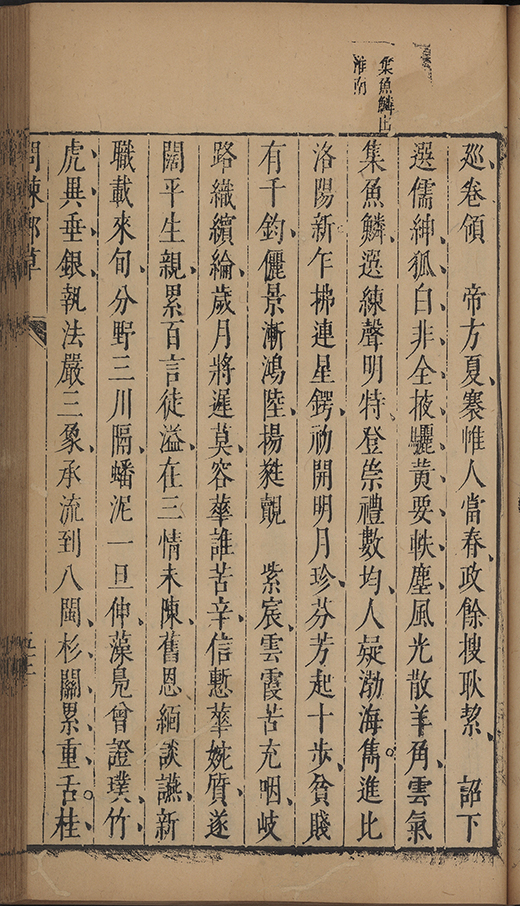 集魚鱗出
淮南
巡卷領　帝方夏褰惟人當春政餘搜耿絜　詔下
選儒紳狐白非全掖驪黃要軼塵風光散羊角雲氣
集魚鱗選練聲明特登崇禮數均人疑渤海雋進比
洛陽新乍拂連星鍔初開明月珍芬芳起十步貧賤
有千鈞儷景漸鴻陸揚蕤覿　紫宸雲霞苦充咽岐
路織繽綸歲月將遲莫容華誰苦辛信慙華婉質遂
闊平生親累百言徒溢在三情未陳舊恩緬談讌新
職載來旬分野三川隔蟠泥一旦伸藻鳧曾證璞竹
虎異垂銀執法嚴三象承流到八閩杉關累重舌桂